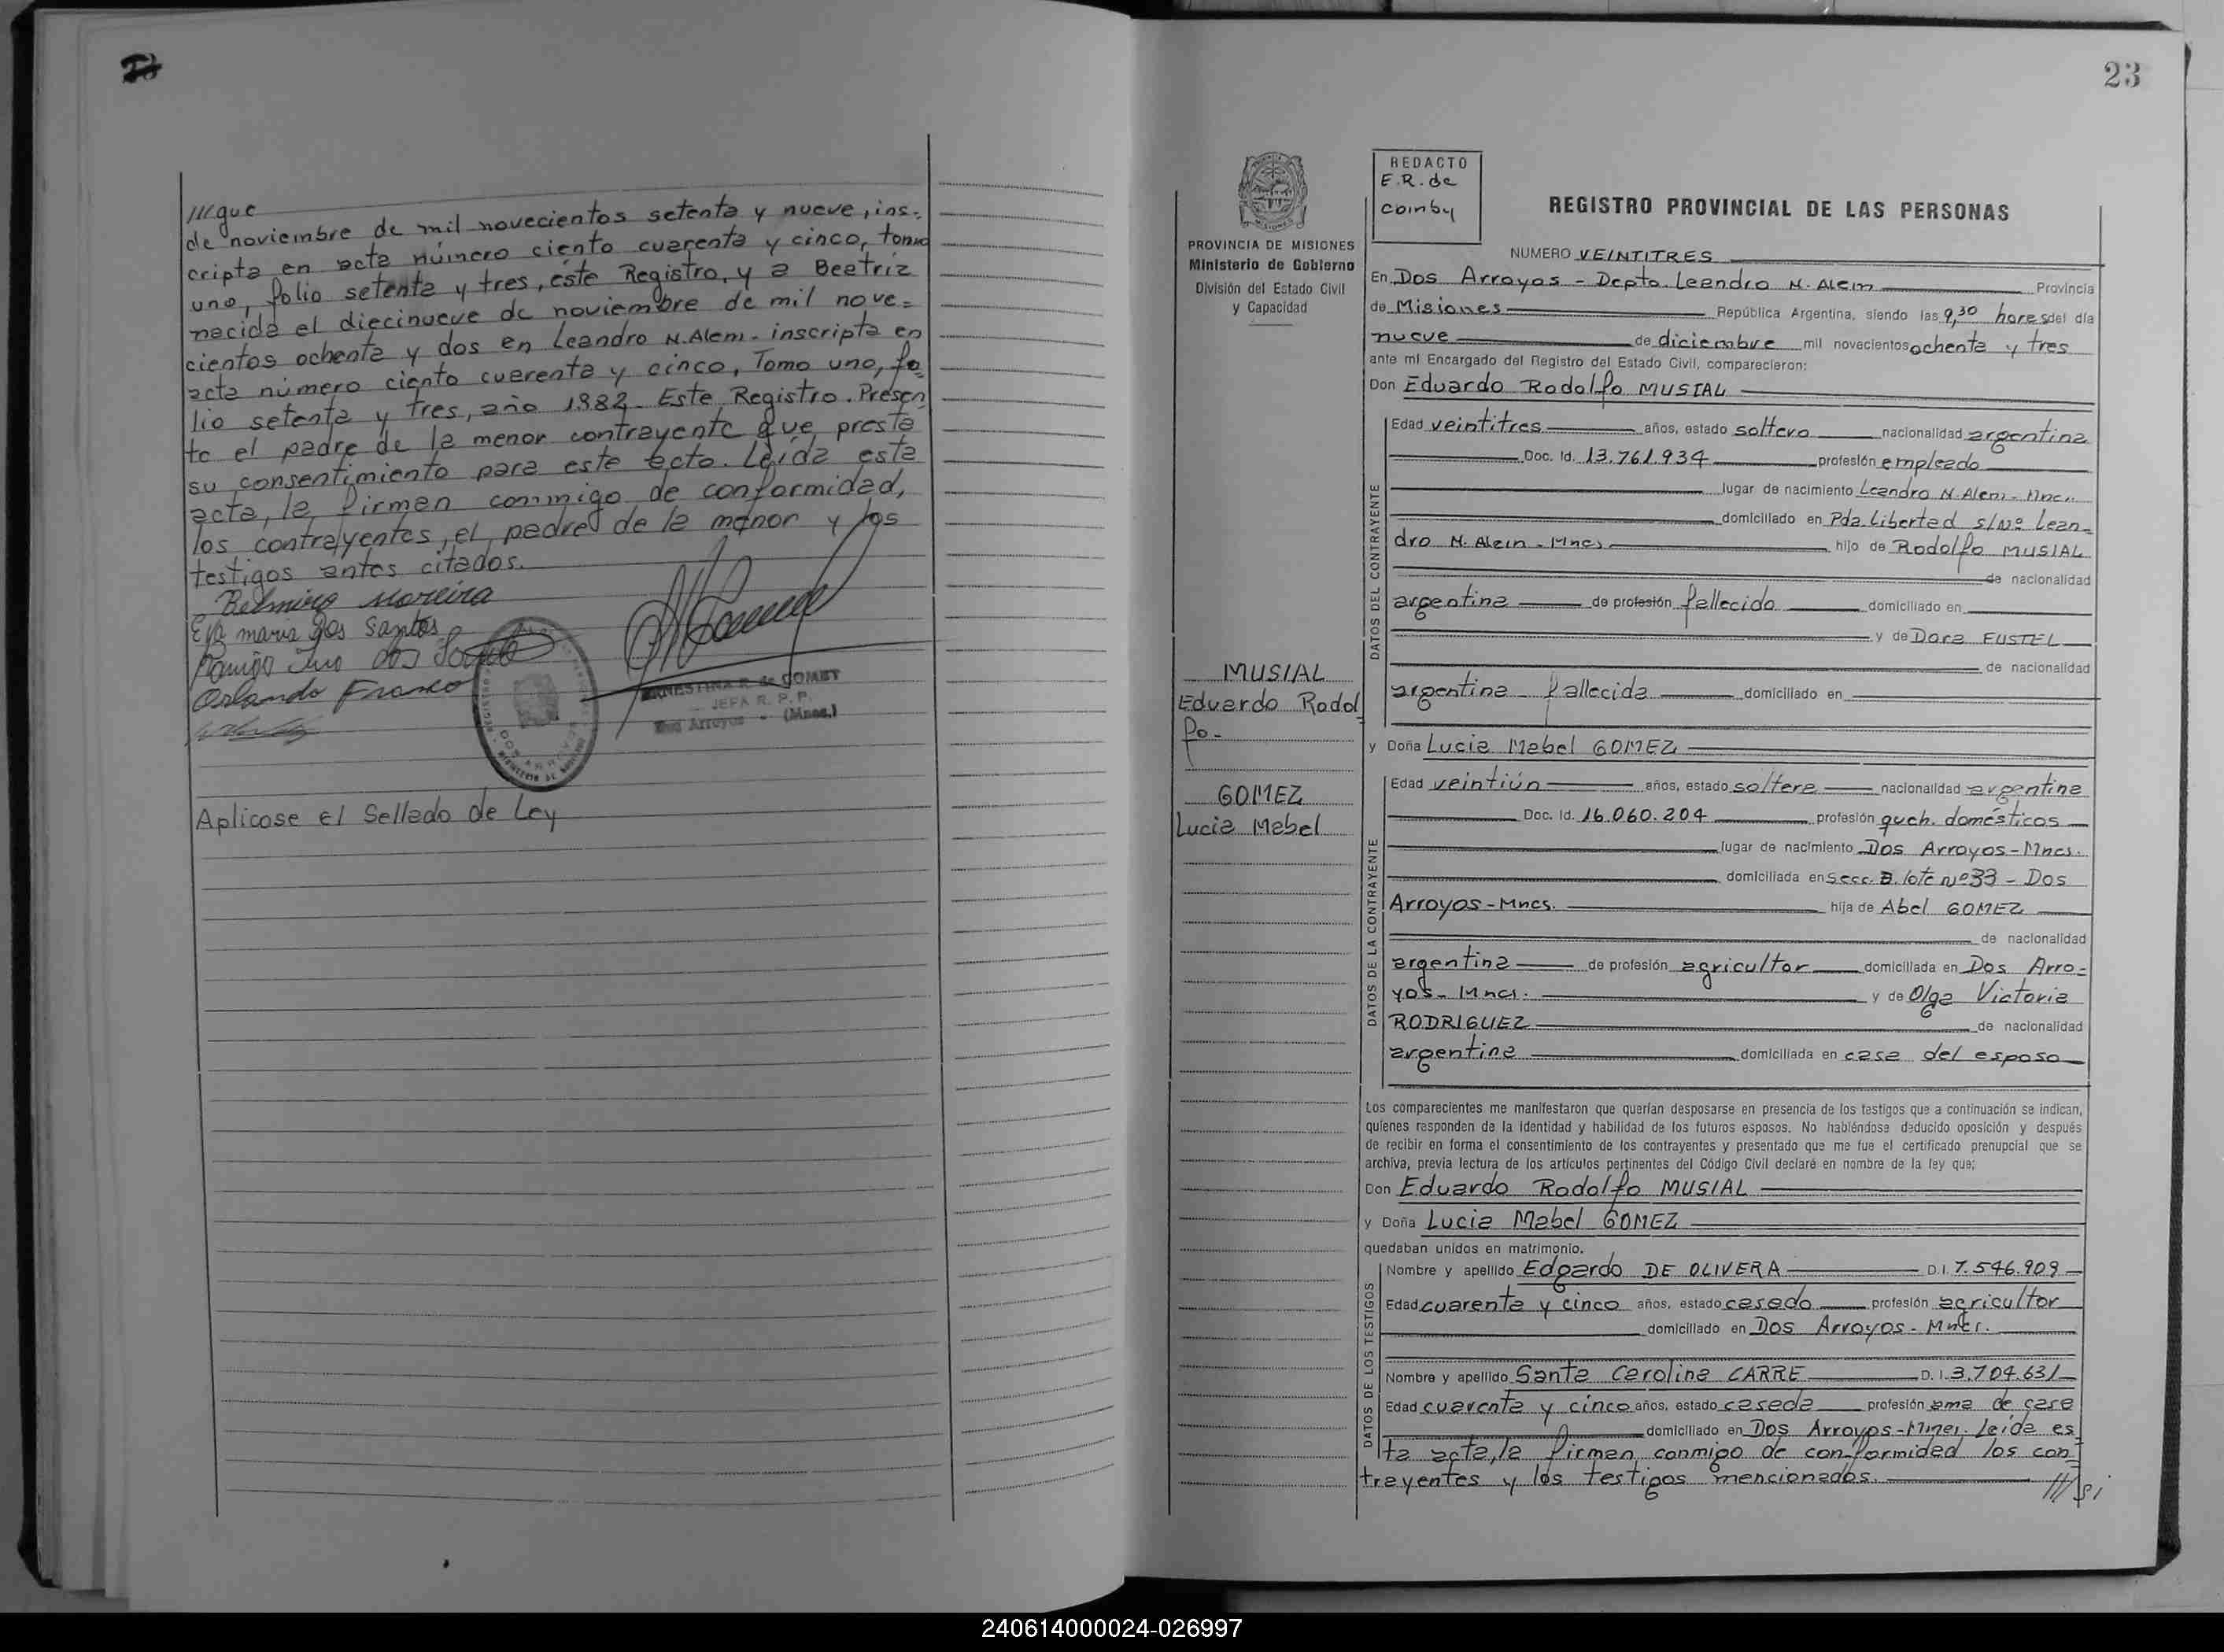 ///que
de noviembre de mil novecientos setenta y nueve, ins-
cripta en acta número ciento cuarenta y cinco, tomo
uno, folio setenta y tres, éste Registro, y a Beatriz
nacida el diecinueve de noviembre de mil nove=
cientos ochenta y dos en Leandro N. Alem - inscripta en
acta número ciento cuarenta y cinco, Tomo uno, fo
lio setenta y tres, año 1982. Este Registro. Presen
te el padre de la menor contrayente que presta
su consentimiento para este acto. Leída esta
acta, la firman conmigo de conformidad,
los contrayentes, el padre de la menor y los
testigos antes citados.
Belmiro Moreira
Eva maria dos Santos
Orlando Franco
ERNESTINA R. de COMBY
JEFA R. P. P.
Dos Arroyos - (Mnes.)
Aplicose el Sellado de Ley
23
REDACTO
E.R. de
Comby
PROVINCIA DE MISIONES
Ministerio de Gobierno
División del Estado Civil
y Capacidad
REGISTRO PROVINCIAL DE LAS PERSONAS
NUMERO VEINTITRES
En Dos Arroyos - Depto. Leandro N. Alem Provincia
de Misiones República Argentina, siendo las 9,30 horas del día
nueve de diciembre mil novecientos ochenta y tres
ante mí Encargado del Registro del Estado Civil, comparecieron:
Don Eduardo Rodolfo MUSIAL
DATOS DEL CONTRAYENTE
Edad veintitres años, estado soltero nacionalidad argentina
Doc. Id. 13.761.934 profesión empleado
lugar de nacimiento Leandro N. Alem - Mnes.
domiciliado en Pda. Libertad s/Nº Lean-
dro N. Alem - Mnes hijo de Rodolfo MUSIAL
de nacionalidad
argentina de profesión fallecido domiciliado en
y de Dora EUSTEL
de nacionalidad
argentina - fallecida domiciliado en
MUSIAL
Eduardo Rodol
fo-
GOMEZ
Lucia Mabel
y Doña Lucia Mabel GOMEZ
DATOS DE LA CONTRAYENTE
Edad veintiún años, estado soltera nacionalidad argentina
Doc. Id. 16.060.204 profesión queh. domésticos
lugar de nacimiento Dos Arroyos - Mnes.
domiciliada en Secc. B. lote nº 33 - Dos
Arroyos - Mnes. hija de Abel GOMEZ
de nacionalidad
argentina de profesión agricultor domiciliada en Dos Arro-
yos - Mnes. y de Olga Victoria
RODRIGUEZ de nacionalidad
argentina domiciliada en casa del esposo
Los comparecientes me manifestaron que querían desposarse en presencia de los testigos que a continuación se indican,
quienes responden de la identidad y habilidad de los futuros esposos. No habiéndose deducido oposición y después
de recibir en forma el consentimiento de los contrayentes y presentado que me fue el certificado prenupcial que se
archiva, previa lectura de los artículos pertinentes del Código Civil declaré en nombre de la ley que;
Don Eduardo Rodolfo MUSIAL
y Doña Lucia Mabel GOMEZ
quedaban unidos en matrimonio.
DATOS DE LOS TESTIGOS
Nombre y apellido Edgardo DE OLIVERA D.I. 7.546.909
Edad cuarenta y cinco años, estado casado profesión agricultor
domiciliado en Dos Arroyos - Mnes.
Nombre y apellido Santa Carolina CARRE D. I. 3.704.631
Edad cuarenta y cinco años, estado casada profesión ama de casa
domiciliado en Dos Arroyos - Mnes. Leída es
ta acta, la firman conmigo de conformidad los con
trayentes y los testigos mencionados.
///si
240614000024-026997